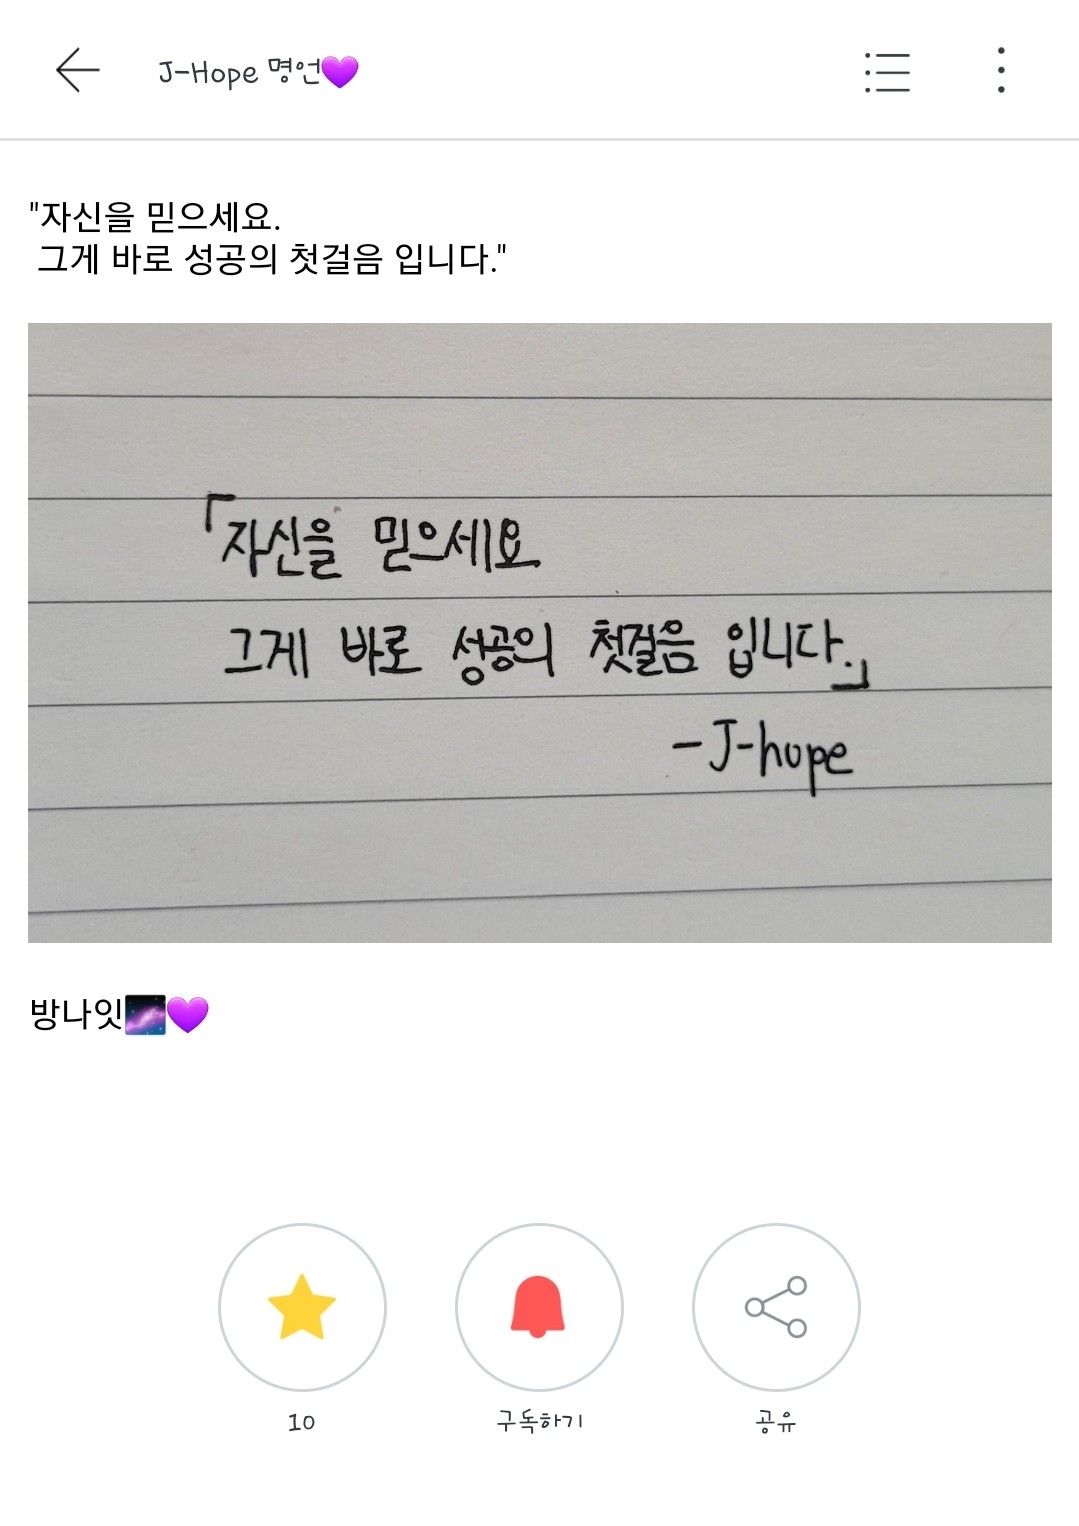 J-Hope 명언💜
"자신을 믿으세요.
그게 바로 성공의 첫걸음 입니다."
「자신을 믿으세요
그게 바로 성공의 첫걸음 입니다.」
-J-hope
방나잇🌌💜
10
구독하기
공유